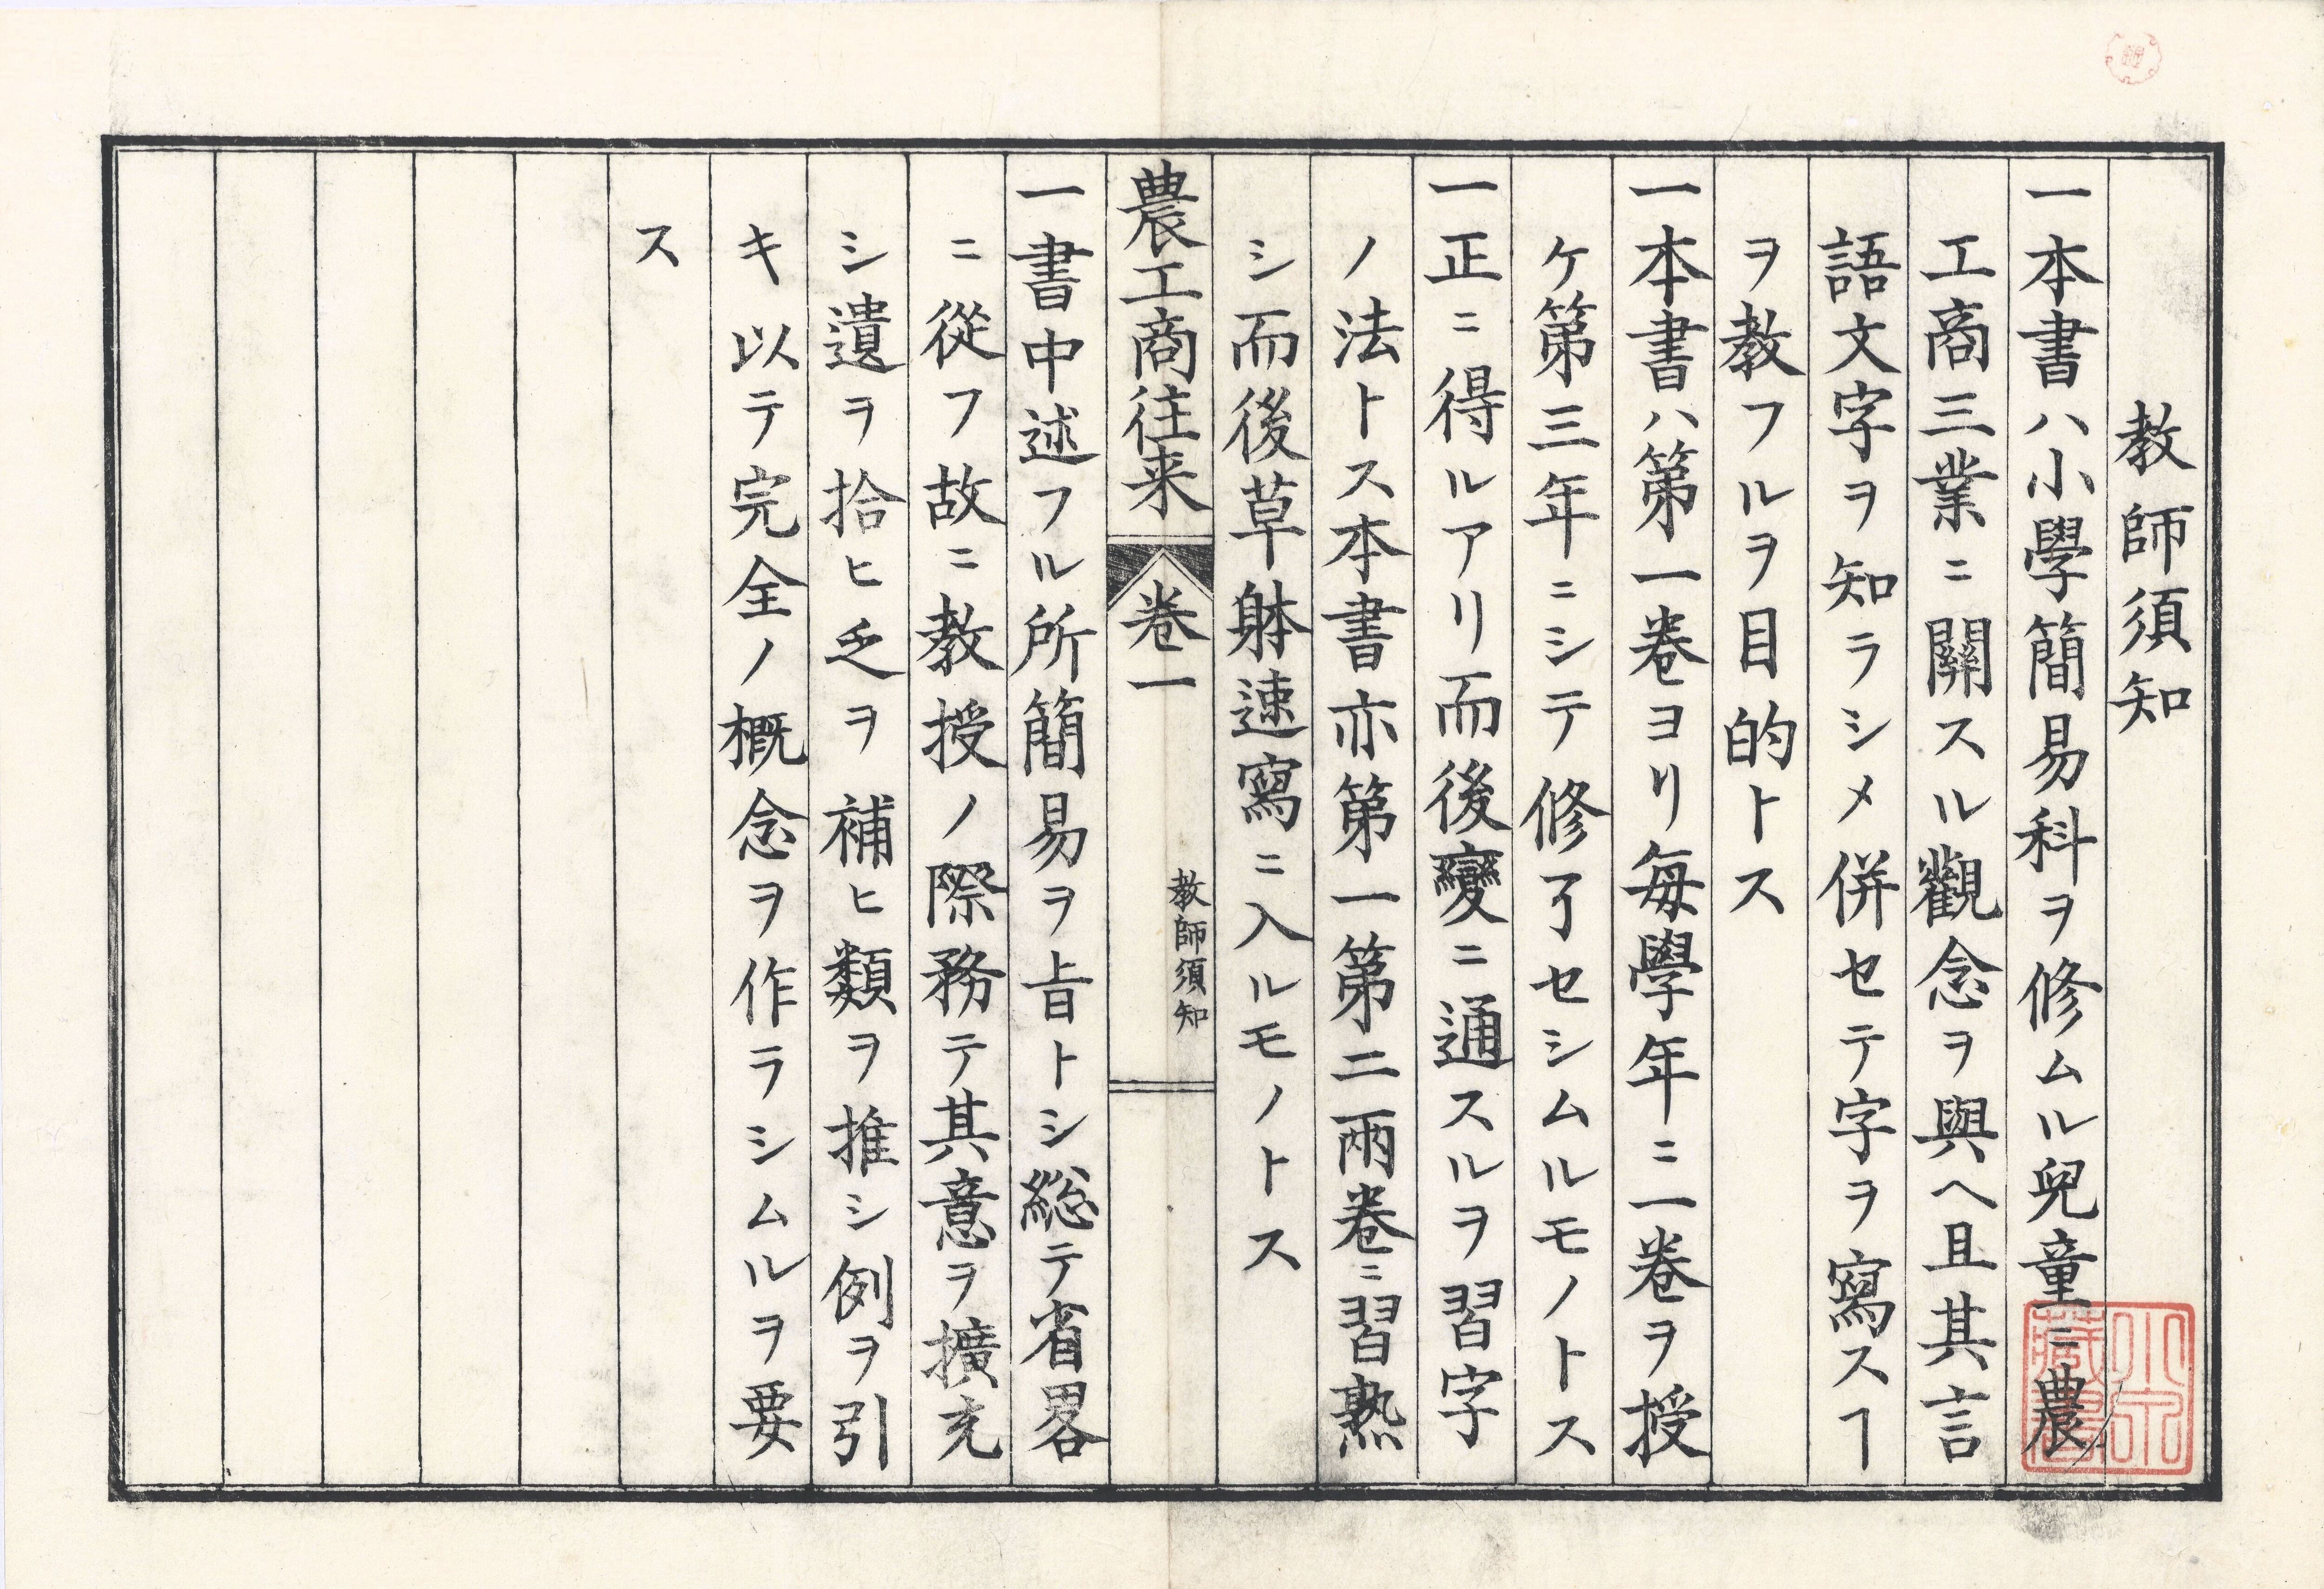 教師須知
一本書ハ小學簡易科ヲ修ムル兒童ニ農
工商三業ニ關スル觀念ヲ與ヘ且其言
語文字ヲ知ラシメ併セテ字ヲ寫スヿ
ヲ教フルヲ目的トス
一本書ハ第一卷ヨリ每學年ニ一卷ヲ授
ケ第三年ニシテ修了セシムルモノトス
一正ニ得ルアリ而後變ニ通スルヲ習字
ノ法トス本書亦第一第二兩卷ニ習熟
シ而後草躰速寫ニ入ルモノトス
農工商往来
卷一
教師須知
一書中述フル所簡易ヲ旨トシ総テ省畧
ニ從フ故ニ教授ノ際務テ其意ヲ擴充
シ遺ヲ拾ヒ乏ヲ補ヒ類ヲ推シ例ヲ引
キ以テ完全ノ概念ヲ作ラシムルヲ要
ス